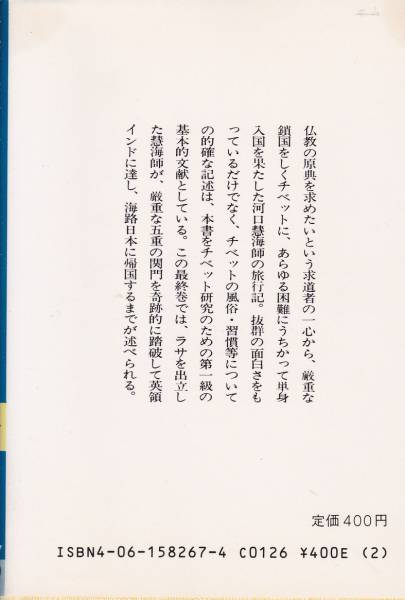 仏教の原典を求めたいという求道者の一心から、厳重な
鎖国をしくチベットに、あらゆる困難にうちかって単身
入国を果たした河口慧海師の旅行記。抜群の面白さをも
っているだけでなく、チベットの風俗・習慣等について
の的確な記述は、本書をチベット研究のための第一級の
基本的文献としている。この最終巻では、ラサを出立し
た慧海師が、厳重な五重の関門を奇跡的に踏破して英領
インドに達し、海路日本に帰国するまでが述べられる。
定価400円
ISBN4-06-158267-4 C0126 ¥400E (2)